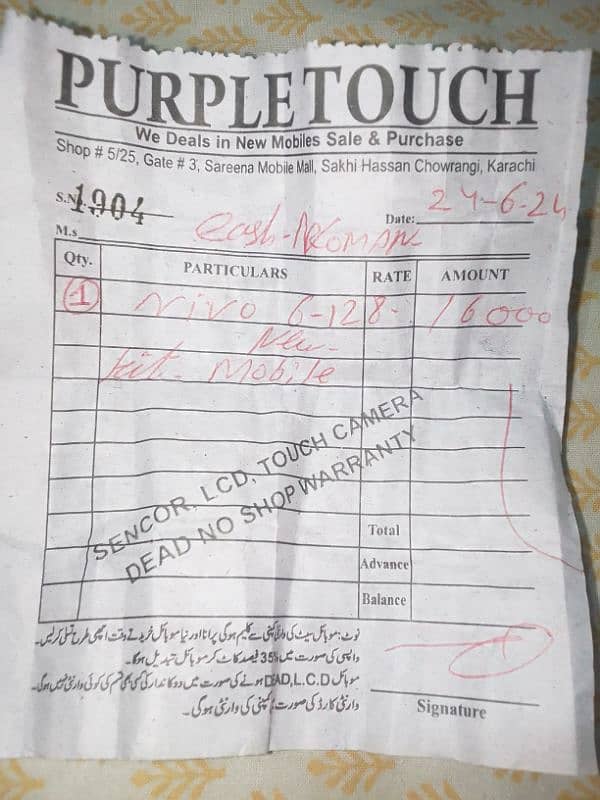 PURPLE TOUCH
We Deals in New Mobiles Sale & Purchase
Shop # 5/25, Gate # 3, Sareena Mobile Mall, Sakhi Hassan Chowrangi, Karachi
S.No. 1904
Date: 24-6-24
M.s Cash-NOMAN
Qty. PARTICULARS RATE AMOUNT
1 Vivo 6-128- 16000
New-
kit- Mobile
SENCOR, LCD, TOUCH CAMERA
DEAD NO SHOP WARRANTY
Total
Advance
Balance
نوٹ: موبائل سیٹ کی وارنٹی کمپنی سے کلیم ہوگی پرانا اور نیا موبائل خریدتے وقت اچھی طرح تسلی کرلیں۔
واپسی کی صورت میں %35 فیصد کاٹ کر موبائل تبدیل ہوگا۔
موبائل DEAD, L.C.D ہونے کی صورت میں دوکاندار کی کسی بھی قسم کی کوئی وارنٹی نہیں ہوگی۔
وارنٹی کارڈ کی صورت کمپنی کی وارنٹی ہوگی۔
Signature